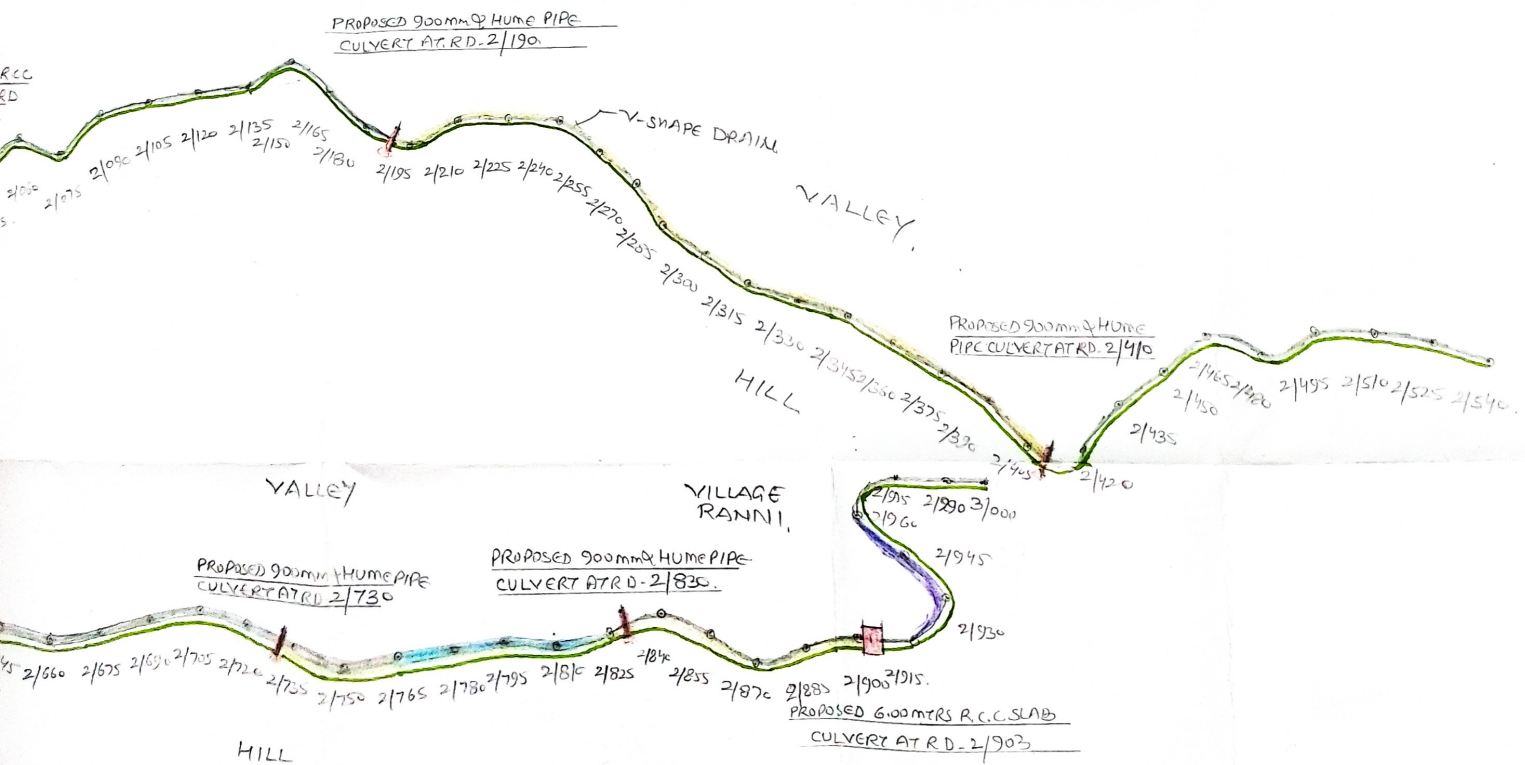 PROPOSED 900mmφ HUME PIPE
CULVERT AT. RD- 2/190.
RCC
RD
V-SHAPE DRAIN
2/060
2/075
2/090
2/105
2/120
2/135
2/150
2/165
2/180
2/195
2/210
2/225
2/240
2/255
2/270
2/285
2/300
2/315
2/330
2/345
2/360
2/375
2/390
2/405
2/420
2/435
2/450
2/465
2/480
2/495
2/510
2/525
2/540.
VALLEY.
HILL
PROPOSED 900mmφ HUME
PIPE CULVERT AT RD- 2/410
VALLEY
VILLAGE
RANNI.
PROPOSED 900mmφ HUME PIPE
CULVERT AT RD 2/730
PROPOSED 900mmφ HUME PIPE
CULVERT AT RD- 2/830.
45
2/660
2/675
2/690
2/705
2/720
2/735
2/750
2/765
2/780
2/795
2/810
2/825
2/840
2/855
2/870
2/885
2/900
2/915.
2/930
2/945
2/960
2/975
2/990
3/000
PROPOSED 6.00 MTRS R.C.C SLAB
CULVERT AT RD- 2/903
HILL